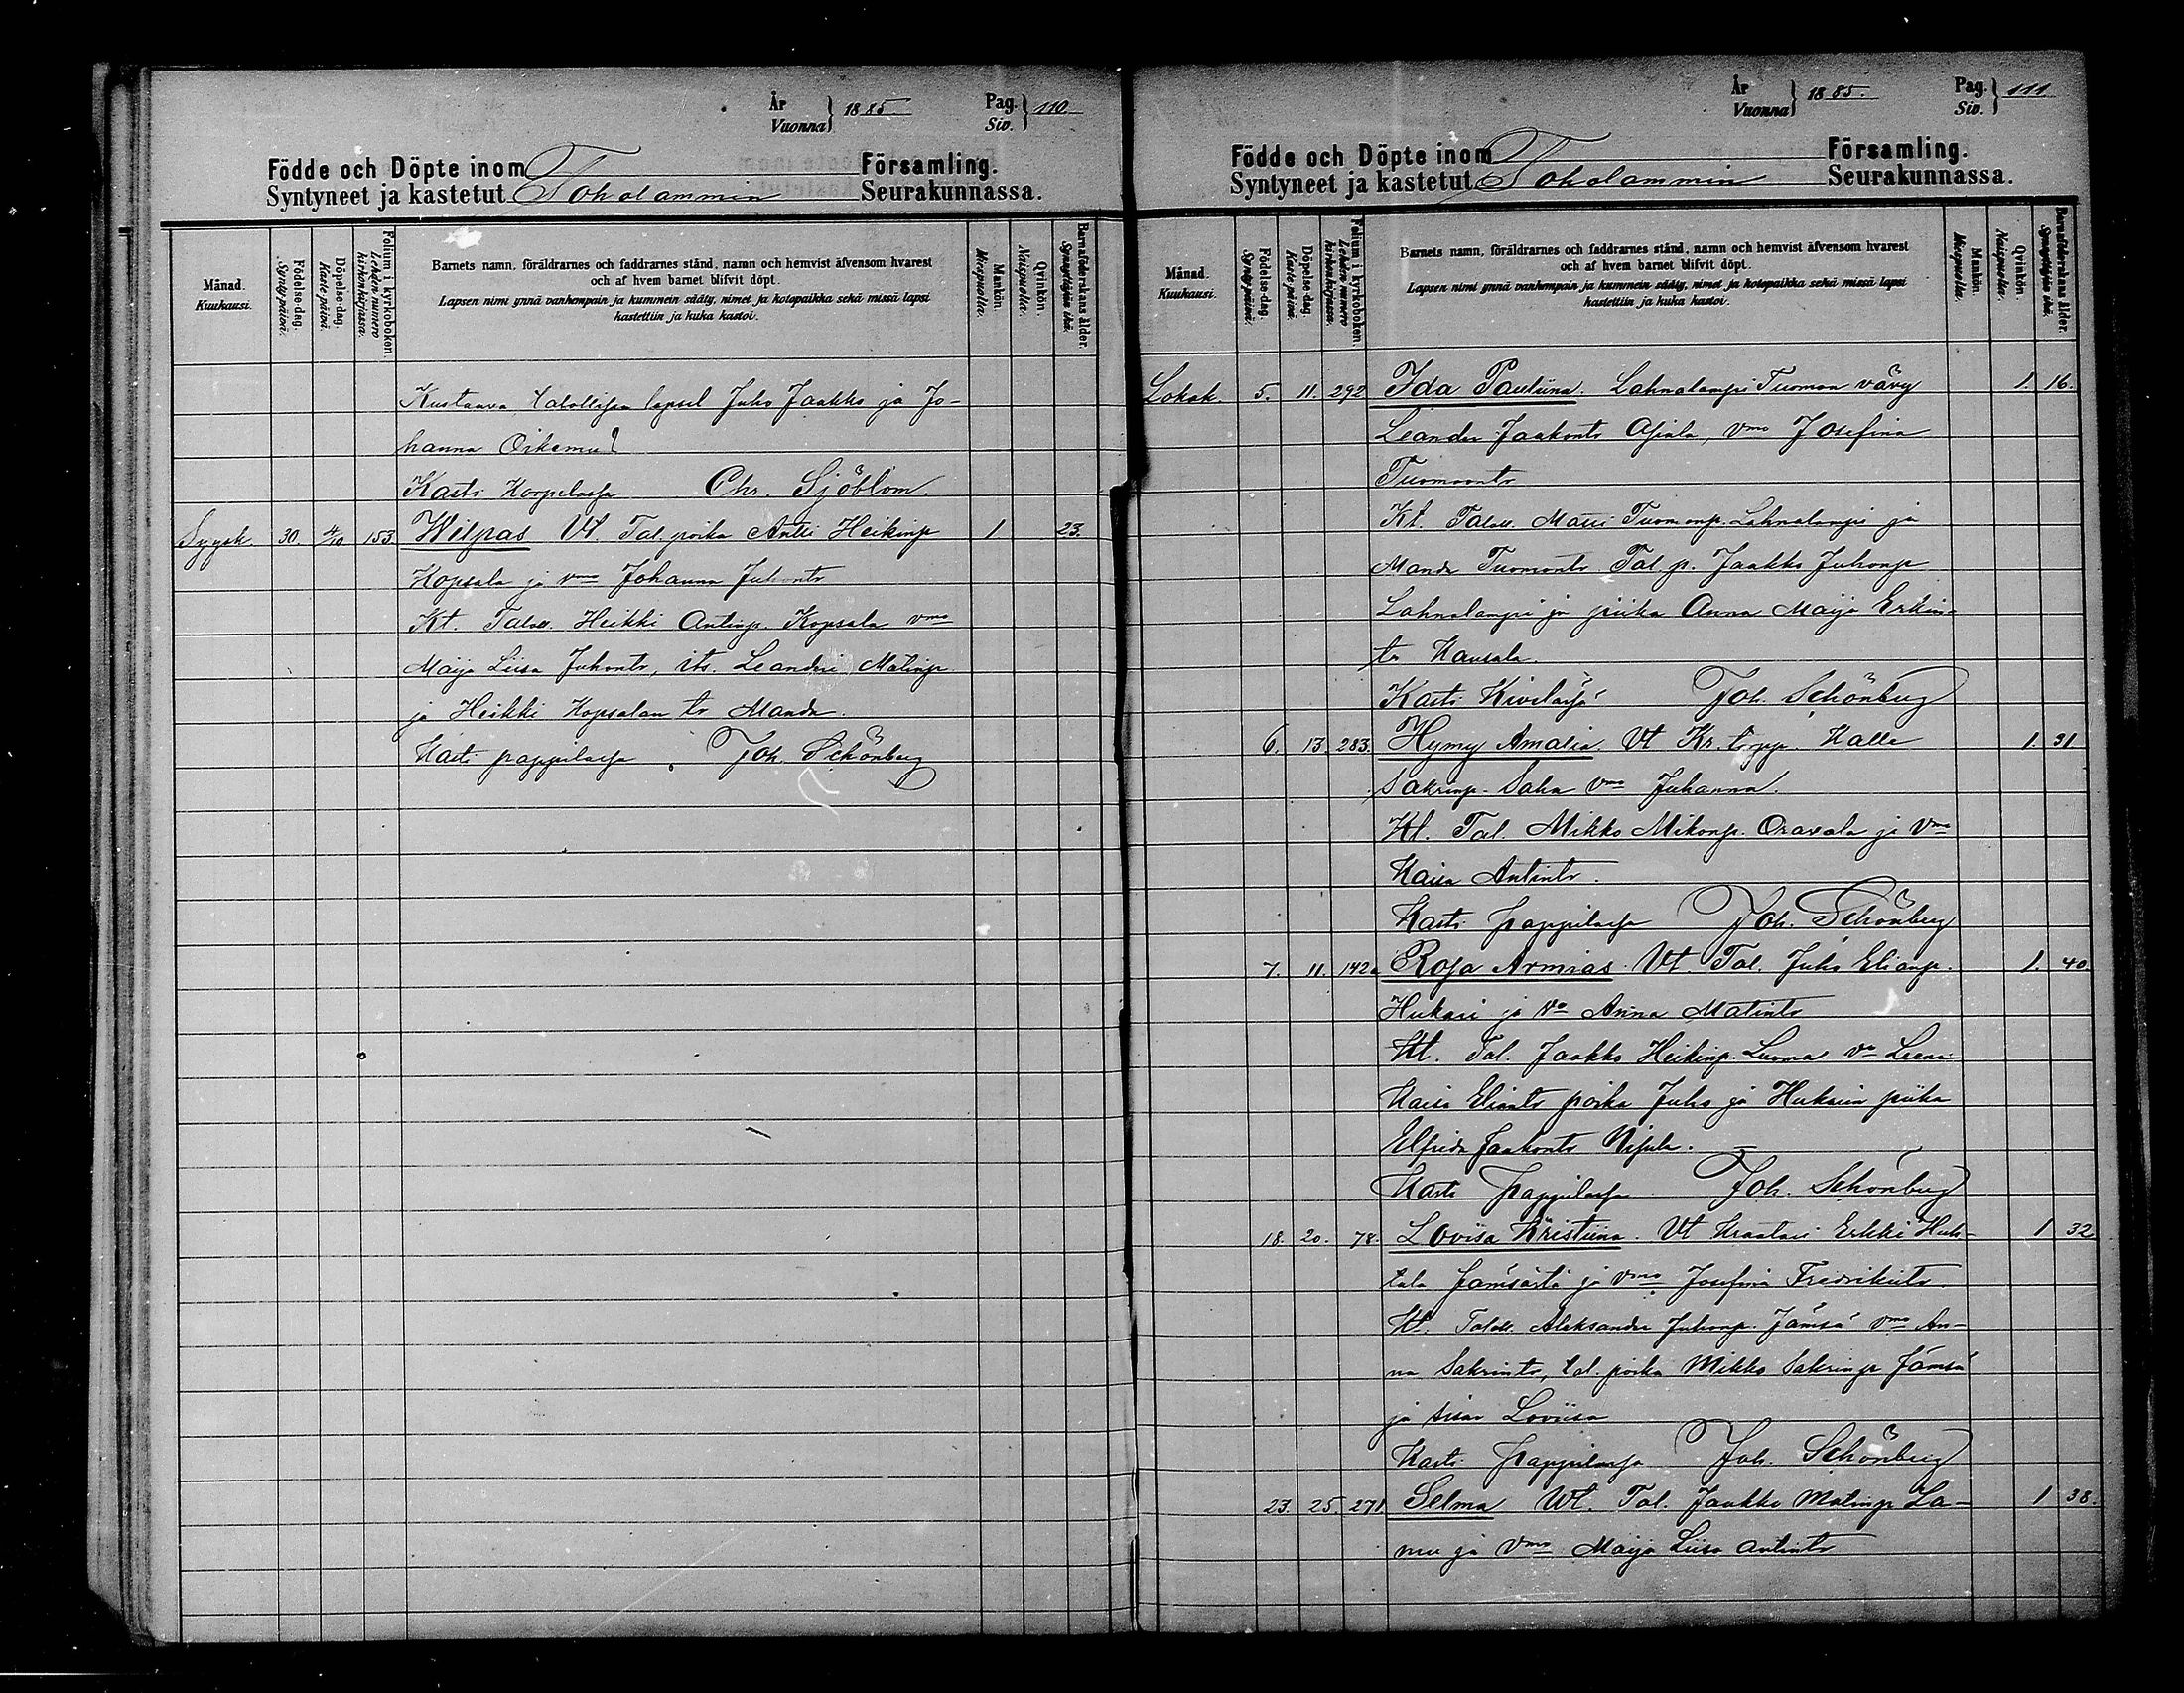 År
Vuonna } 1885. Pag.
Siv. } 110.
Födde och Döpte inom Församling.
Syntyneet ja kastetut Toholammin Seurakunnassa.
Månad.
Kuukausi.
Födelse-dag.
Syntypäivä.
Döpelse-dag.
Kastepäivä.
Folium i kyrkoboken.
Lehden numero kirkonkirjassa.
Barnets namn, föräldrarnes och faddrarnes stånd, namn och hemvist äfvensom hvarest
och af hvem barnet blifvit döpt.
Lapsen nimi ynnä vanhempain ja kummein sääty, nimet ja kotopaikka sekä missä lapsi
kastettiin ja kuka kastoi.
Mankön.
Miespuolia.
Qvinkön.
Naispuolia.
Barnaföderskans ålder.
Synnyttäjän ikä.
Kustaava talollisen lapset Juho Jaakko ja Jo-
hanna Oikemus
Kasti Korpelassa Chr. Sjöblom.
Syysk. 30. 4/10 153. Wilpas Vt. Tal. poika Antti Heikinp 1 23.
Kopsala ja vmo Johanna Juhontr
Kt. Taloll. Heikki Antinp. Kopsala vmo
Maija Liisa Juhontr, its. Leanderi Matinp
ja Heikki Kopsalan tr Manda.
Kasti pappilassa Joh. Schönberg
År
Vuonna } 1885. Pag.
Siv. } 111.
Födde och Döpte inom Församling.
Syntyneet ja kastetut Toholammin Seurakunnassa.
Månad.
Kuukausi.
Födelse-dag.
Syntypäivä.
Döpelse-dag.
Kastepäivä.
Folium i kyrkoboken.
Lehden numero kirkonkirjassa.
Barnets namn, föräldrarnes och faddrarnes stånd, namn och hemvist äfvensom hvarest
och af hvem barnet blifvit döpt.
Lapsen nimi ynnä vanhempain ja kummein sääty, nimet ja kotopaikka sekä missä lapsi
kastettiin ja kuka kastoi.
Mankön.
Miespuolia.
Qvinkön.
Naispuolia.
Barnaföderskans ålder.
Synnyttäjän ikä.
Lokak. 5. 11. 292 Ida Pauliina. Lahnalampi Tuomaa vävy 1. 16.
Leander Jaakontr Asiala, vmo Josefina
Tuomaantr
Kt. Taloll. Matti Tuomonp. Lahnalampi ja
Manda Tuomontr Tal p. Jaakko Juhonp
Lahnalampi ja piika Anna Maija Erkin-
tr Kausala.
Kasti Kivelässä Joh. Schönberg
6. 13. 283. Hymy Amalia. Vt Kr. torpp. Kalle 1. 31
Sakrinp. Saha vmo Juhanna.
Kt. Tal. Mikko Mikonp. Oravala ja Vmo
Kaisa Antintr.
Kasti pappilassa Joh. Schönberg
7. 11. 142. Rosa Armias. Vt. Tal. Juho Elianp. 1. 40.
Hukari ja Vo Anna Matintr
Kt. Tal. Jaakko Heikinp. Luoma Vo Leena
Kaisa Eliantr poika Juho ja Hukarin piika
Elfrida Jaakontr
Kasti pappilassa Joh. Schönberg
18. 20. 78. Lovisa Kristiina. Vt Kraatari Erkki Huh- 1 32
tala Jämsästä ja vmo Josefina Fredrikintr
Kt. Taloll. Aleksander Juhonp. Jämsä vmo An-
na Sakrintr, tal. poika Mikko Sakrinp Jämsä
ja sisar Loviisa
Kasti pappilassa Joh. Schönberg
23. 25. 271. Selma Vt. Tal. Jaakko Matinp La- 1 38.
mu ja Vmo Maija Liisa Antintr